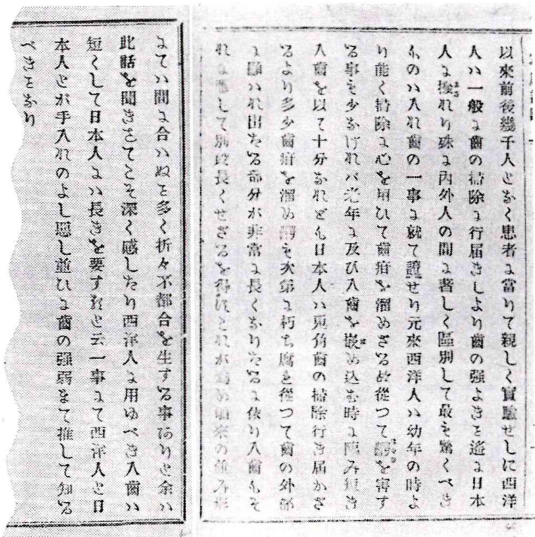 以來前後幾千人となく患者に當りて親しく實驗せしに西洋
人ハ一般に齒の掃除に行届きしより齒の強よきを遙に日本
人に換れり殊に内外人の間に著しく區別して最も驚くべき
ものハ入れ齒の一事に就て證せり元來西洋人ハ幼年の時よ
り能く掃除に心を用ひて齒垢を溜めざる故從つて齦を害す
る事も少なけれバ老年に及び入齒を嵌め込む時に臨み短き
入齒を以て十分なれども日本人ハ兎角齒の掃除行き届かざ
るより多少齒垢を溜め齦も次第に朽ち腐を從つて齒の外部
に顯ハれ出たる部分が非常に長くなりたるに依り入齒もそ
れに應して別段長くせざるを得ず これが爲め舶來の並み形
にてハ間に合ハぬも多く折々不都合を生する事ありと余ハ
此話を聞きさてこそ深く感したり西洋人に用ゆべき入齒ハ
短くして日本人にハ長きを要すると云一事にて西洋人と日
本人とが手入れのよし惡し並ひに齒の強弱をて推して知る
べきなり